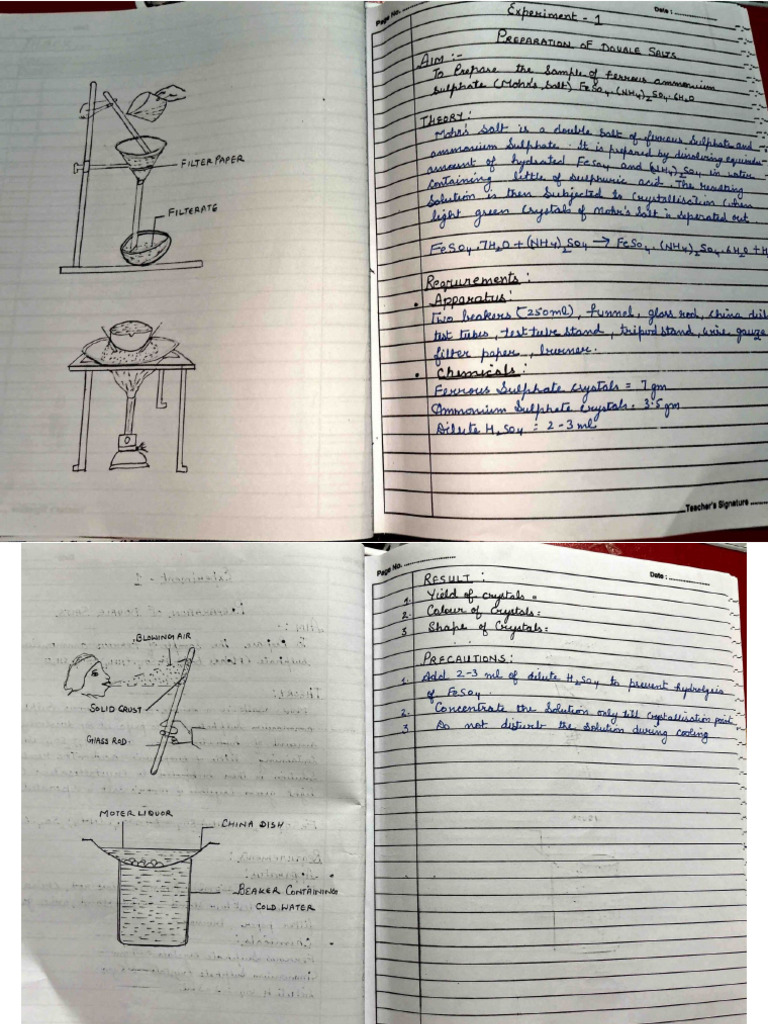 FILTER PAPER
FILTERATE
Page No. Date :
Experiment - 1
PREPARATION OF DOUBLE SALTS
AIM :-
To Prepare the Sample of ferrous ammonium
sulphate (Mohr's Salt) FeSO4.(NH4)2SO4.6H2O
THEORY:
Mohr's Salt is a double salt of ferrous Sulphate and
ammonium Sulphate. It is prepared by dissolving equimola
amount of hydrated FeSO4 and (NH4)2SO4 in water
containing little of sulphuric acid. The resulting
Solution is then Subjected to crystallisation when
light green crystals of Mohr's Salt is seperated out
FeSO4.7H2O + (NH4)2SO4 → FeSO4.(NH4)2SO4.6H2O + H
Requirements :
• Apparatus:
Two beakers (250ml), funnel, glass rod, china dish
test tubes, test tube stand, tripod stand, wire gauze
filter paper, burner.
• Chemicals :
Ferrous Sulphate Crystals = 7 gm
Ammonium Sulphate Crystals = 3.5 gm
Dilute H2SO4 = 2-3 ml
Teacher's Signature
BLOWING AIR
SOLID CRUST
GLASS ROD
MOTER LIQUOR
CHINA DISH
BEAKER CONTAINING
COLD WATER
Page No. Date :
RESULT :
1. Yield of crystals =
2. Colour of Crystals =
3 Shape of Crystals =
PRECAUTIONS :
1. Add 2-3 ml of dilute H2SO4 to prevent hydrolysis
of FeSO4.
2. Concentrate the Solution only till crystallisation point
3 Do not disturb the solution during cooling